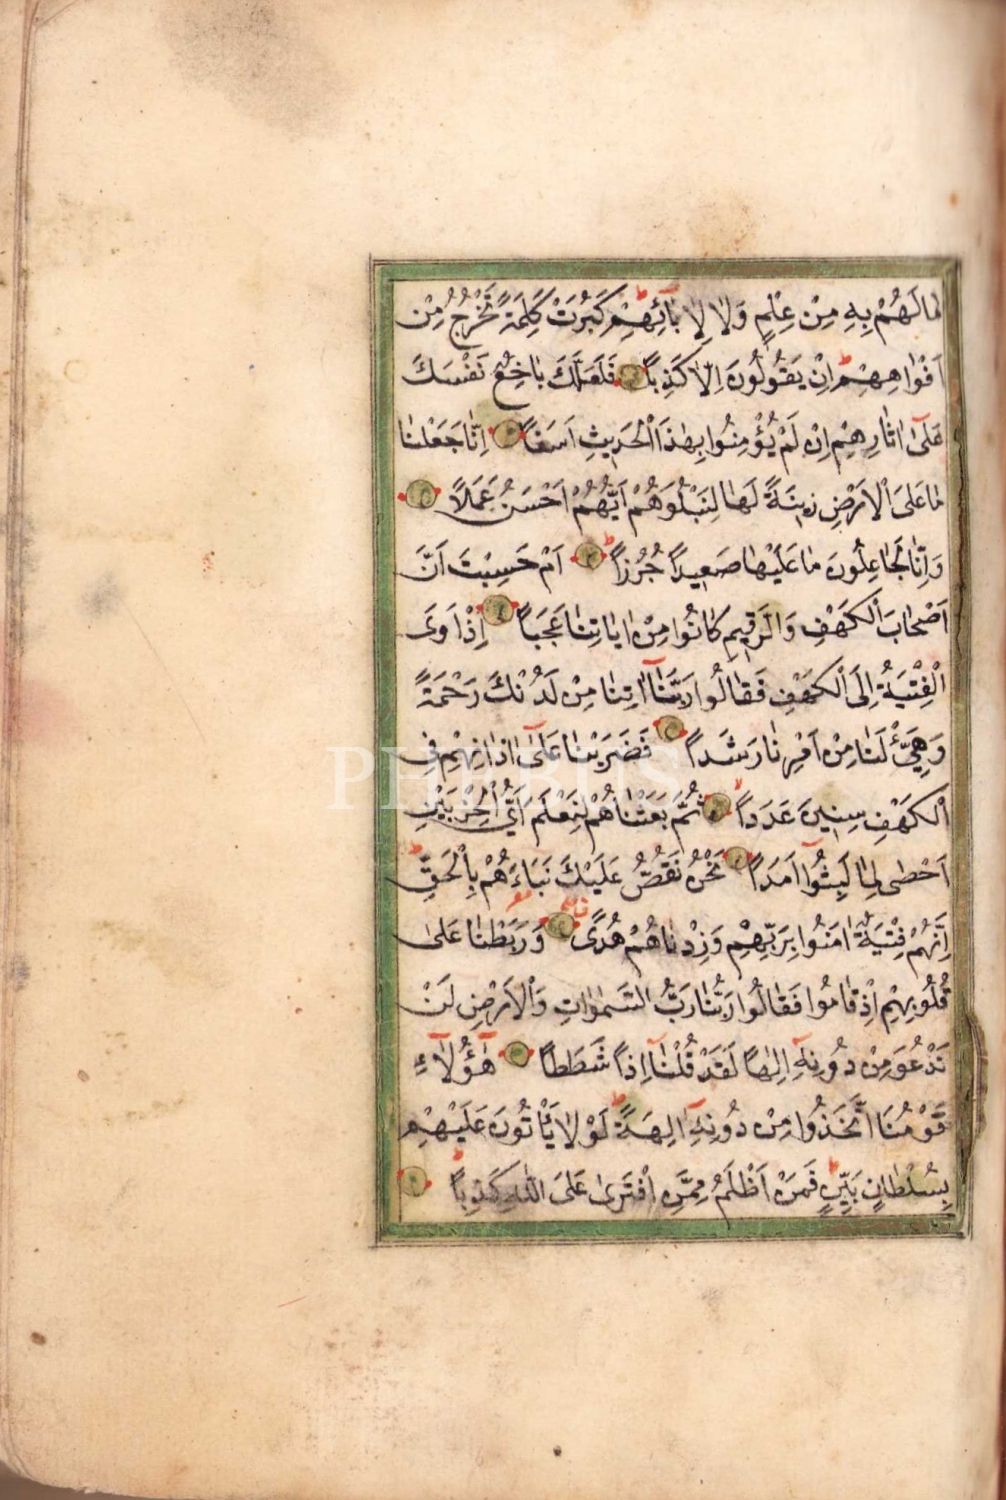 مَا لَهُمْ بِهِ مِنْ عِلْمٍ وَلَا لِاٰبَآئِهِمْ كَبُرَتْ كَلِمَةً تَخْرُجُ مِنْ
اَفْوَاهِهِمْ اِنْ يَقُولُونَ اِلَّا كَذِبًا فَلَعَلَّكَ بَاخِعٌ نَفْسَكَ
عَلٰٓى اٰثَارِهِمْ اِنْ لَمْ يُؤْمِنُوا بِهٰذَا الْحَدِيثِ اَسَفًا اِنَّا جَعَلْنَا
مَا عَلَى الْاَرْضِ زِينَةً لَهَا لِنَبْلُوَهُمْ اَيُّهُمْ اَحْسَنُ عَمَلًا
وَاِنَّا لَجَاعِلُونَ مَا عَلَيْهَا صَعِيدًا جُرُزًا اَمْ حَسِبْتَ اَنَّ
اَصْحَابَ الْكَهْفِ وَالرَّقِيمِ كَانُوا مِنْ اٰيَاتِنَا عَجَبًا اِذْ اَوَى
الْفِتْيَةُ اِلَى الْكَهْفِ فَقَالُوا رَبَّنَآ اٰتِنَا مِنْ لَدُنْكَ رَحْمَةً
وَهَيِّئْ لَنَا مِنْ اَمْرِنَا رَشَدًا فَضَرَبْنَا عَلٰٓى اٰذَانِهِمْ فِى
الْكَهْفِ سِنِينَ عَدَدًا ثُمَّ بَعَثْنَاهُمْ لِنَعْلَمَ اَىُّ الْحِزْبَيْنِ
اَحْصٰى لِمَا لَبِثُوٓا اَمَدًا نَحْنُ نَقُصُّ عَلَيْكَ نَبَاَهُمْ بِالْحَقِّ
اِنَّهُمْ فِتْيَةٌ اٰمَنُوا بِرَبِّهِمْ وَزِدْنَاهُمْ هُدًى وَرَبَطْنَا عَلٰى
قُلُوبِهِمْ اِذْ قَامُوا فَقَالُوا رَبُّنَا رَبُّ السَّمٰوَاتِ وَالْاَرْضِ لَنْ
نَدْعُوَ مِنْ دُونِهِٓ اِلٰهًا لَقَدْ قُلْنَآ اِذًا شَطَطًا هٰٓؤُلَآءِ
قَوْمُنَا اتَّخَذُوا مِنْ دُونِهِٓ اٰلِهَةً لَوْلَا يَاْتُونَ عَلَيْهِمْ
بِسُلْطَانٍ بَيِّنٍ فَمَنْ اَظْلَمُ مِمَّنِ افْتَرٰى عَلَى اللهِ كَذِبًا
PHEBUS